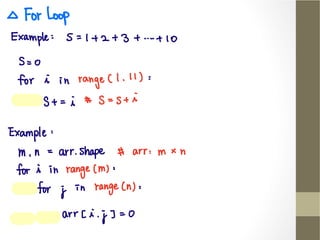 △ For Loop
Example: S = 1 + 2 + 3 + ... + 10
S = 0
for i in range(1, 11):
S += i # S = S + i
Example:
m, n = arr.shape # arr: m × n
for i in range(m):
for j in range(n):
arr[i, j] = 0